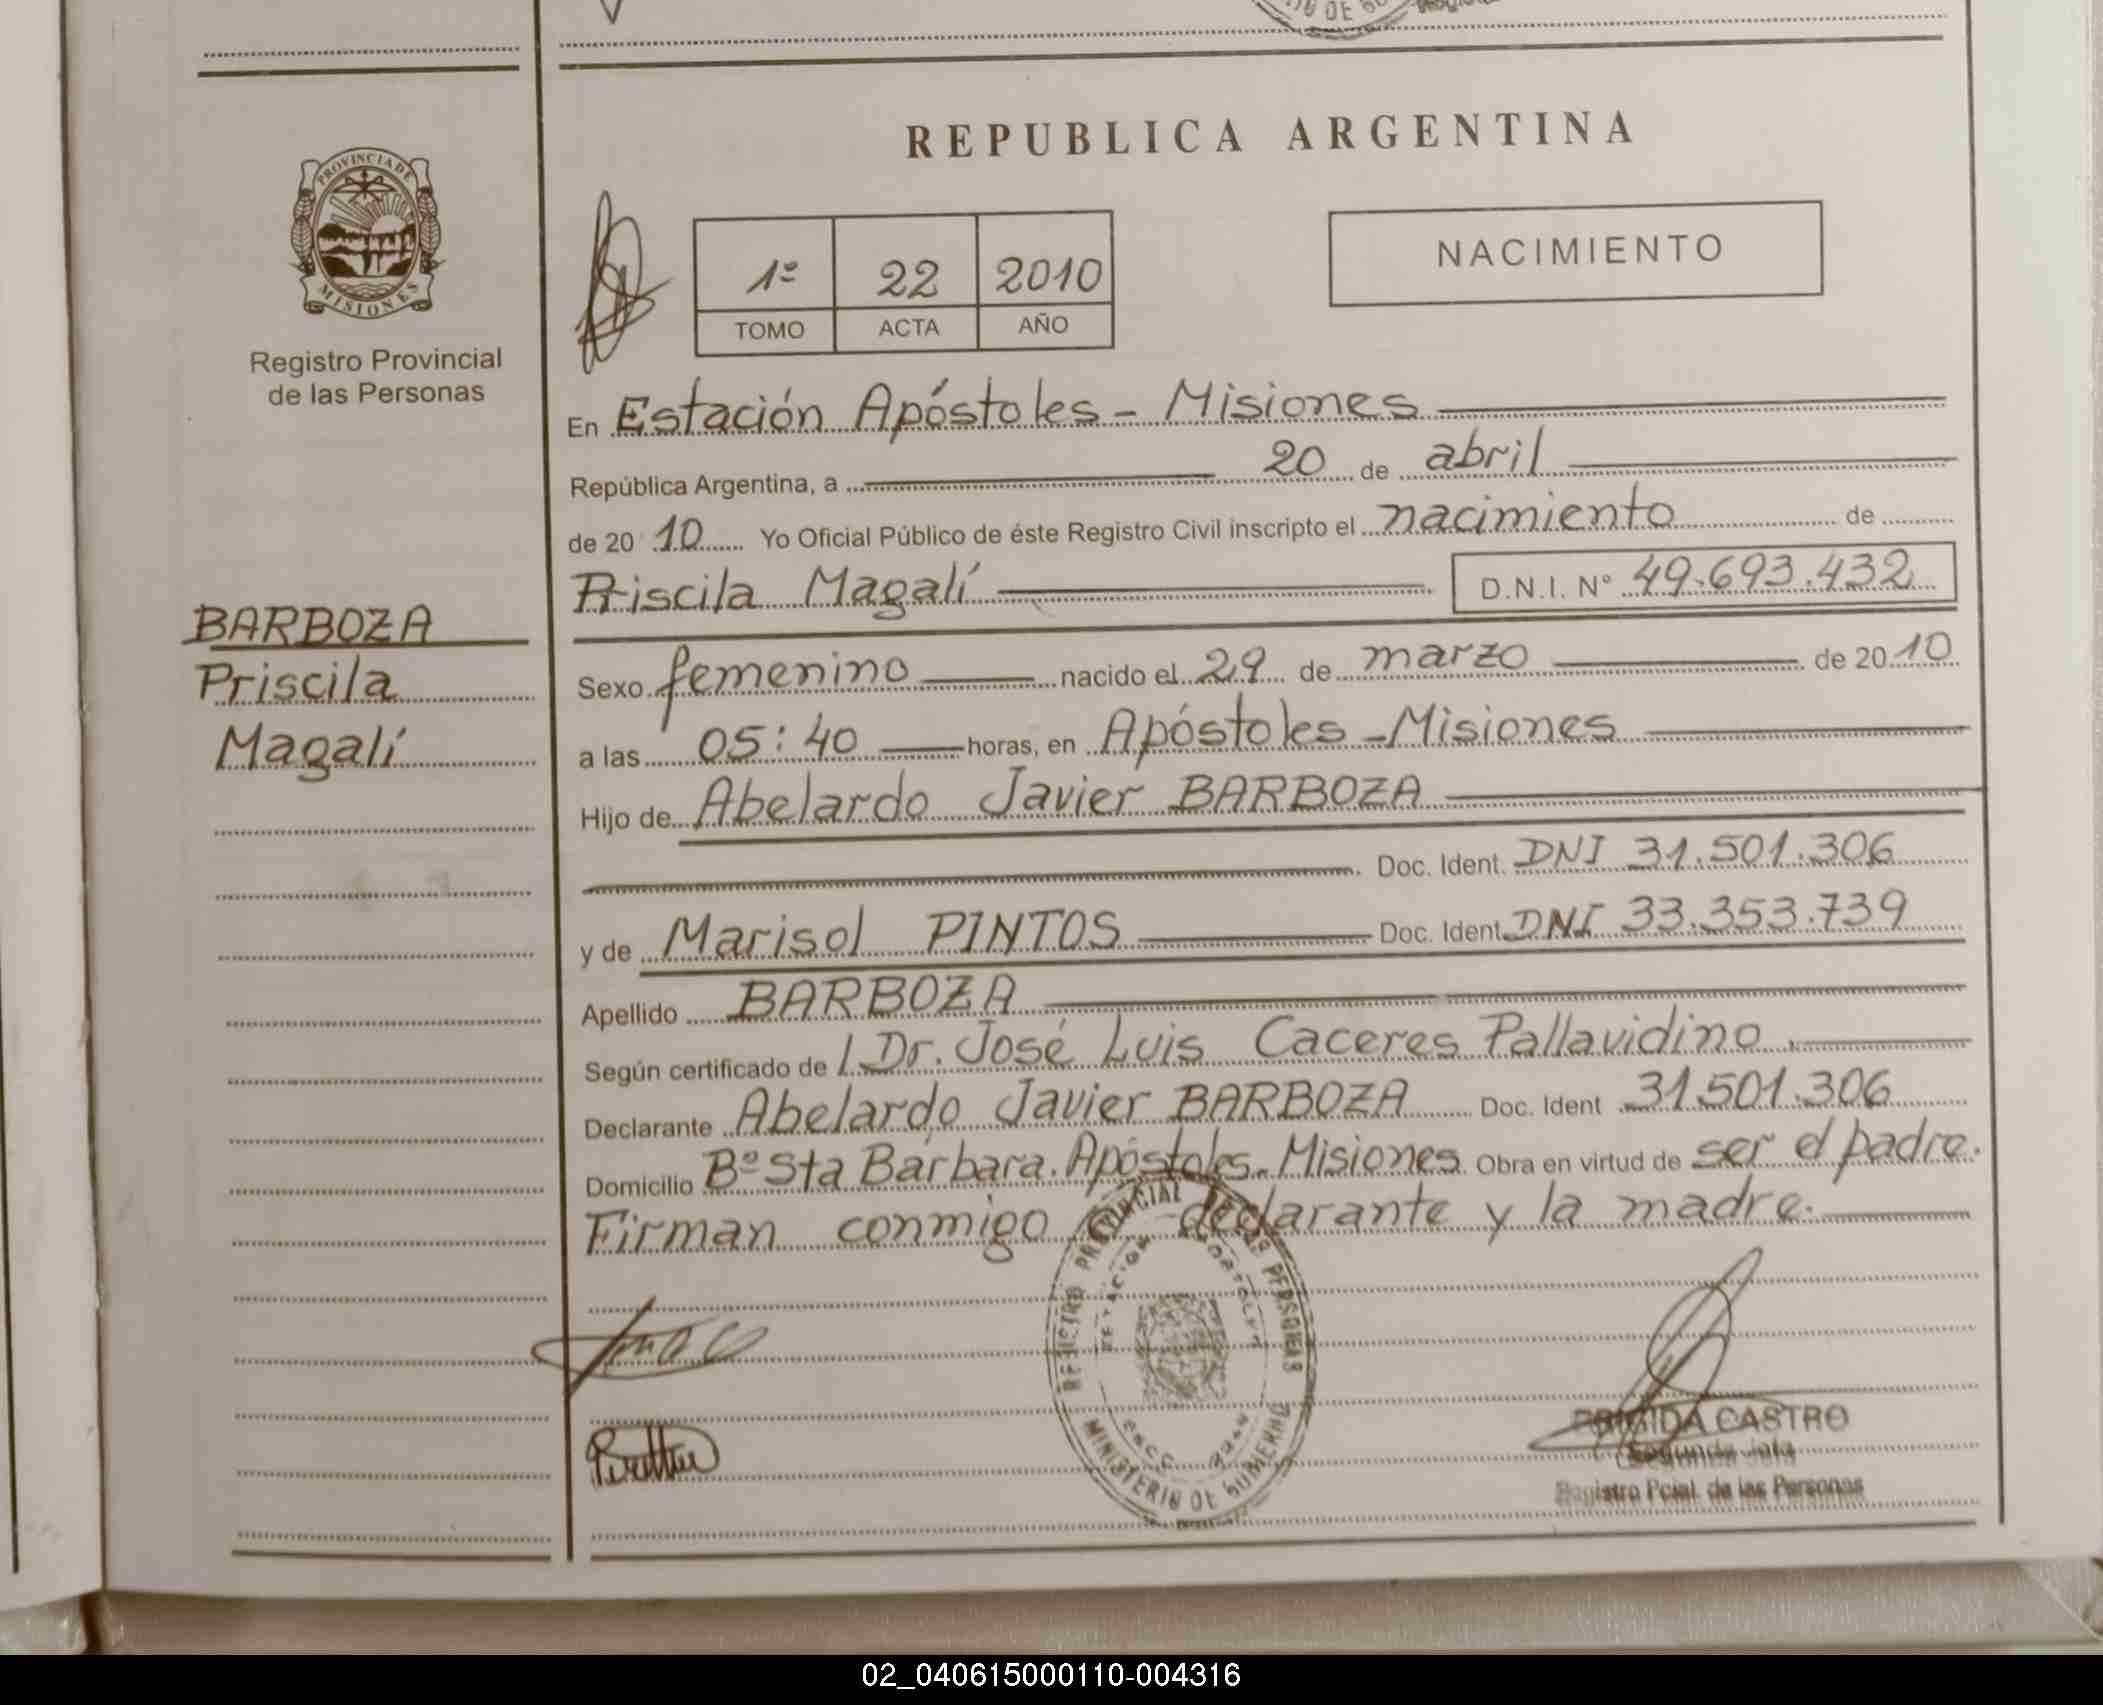 REPUBLICA ARGENTINA
PROVINCIA DE
MISIONES
Registro Provincial
de las Personas
1º 22 2010
TOMO ACTA AÑO
NACIMIENTO
En Estación Apóstoles - Misiones
República Argentina, a 20 de abril
de 20 10 Yo Oficial Público de éste Registro Civil inscripto el nacimiento de
Priscila Magalí D.N.I. Nº 49.693.432
BARBOZA
Priscila
Magalí
Sexo femenino nacido el 29 de marzo de 20 10
a las 05:40 horas, en Apóstoles - Misiones
Hijo de Abelardo Javier BARBOZA
Doc. Ident. DNI 31.501.306
y de Marisol PINTOS Doc. Ident. DNI 33.353.739
Apellido BARBOZA
Según certificado de l Dr. José Luis Caceres Pallavidino.
Declarante Abelardo Javier BARBOZA Doc. Ident 31.501.306
Domicilio Bº Sta Bárbara. Apóstoles - Misiones. Obra en virtud de ser el padre.
Firman conmigo declarante y la madre.
REGISTRO PROVINCIAL DE LAS PERSONAS
MINISTERIO DE GOBIERNO
BRIGIDA CASTRO
Segunda Jefa
Registro Pcial. de las Personas
02_040615000110-004316